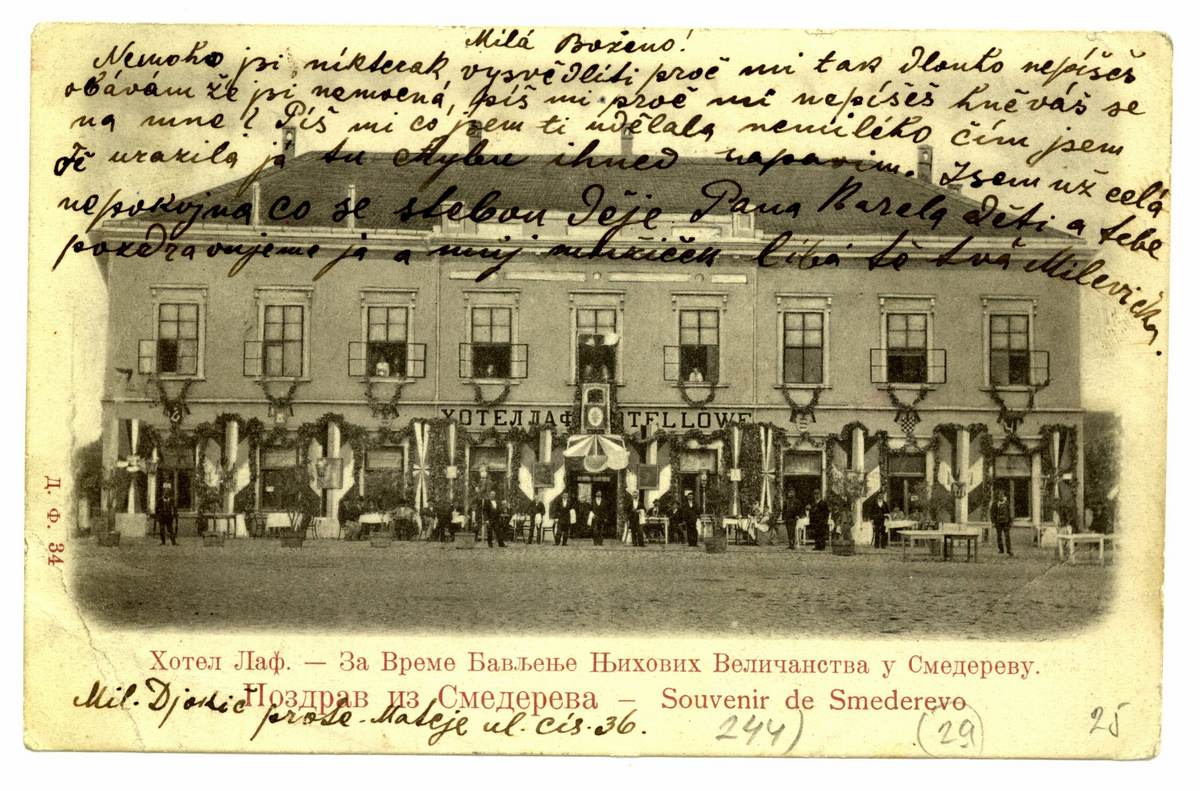 Milá Boženo!
Nemoho jsi nikterak vysvědliti proč mi tak dlouho nepíšeš
obávám že jsi nemocná, píš mi proč mi nepíšeš hněváš se
na mne? Piš mi co jsem ti udělala nemilého čím jsem
Tě urazila já tu chybu ihned napavim. Jsem už celá
nepokojna co se stebou děje Pana Karela děti a tebe
pozdravujeme ja a můj mužiček líbá tě tvá Milevička.
ХОТЕЛ ЛАФ HOTEL LÖWE
Д. Ф. 34
Хотел Лаф. — За Време Бављење Њихових Величанства у Смедереву.
Поздрав из Смедерева — Souvenir de Smederevo
Mil. Djokić prote-Mateje ul. cis. 36.
244)
(29)
25